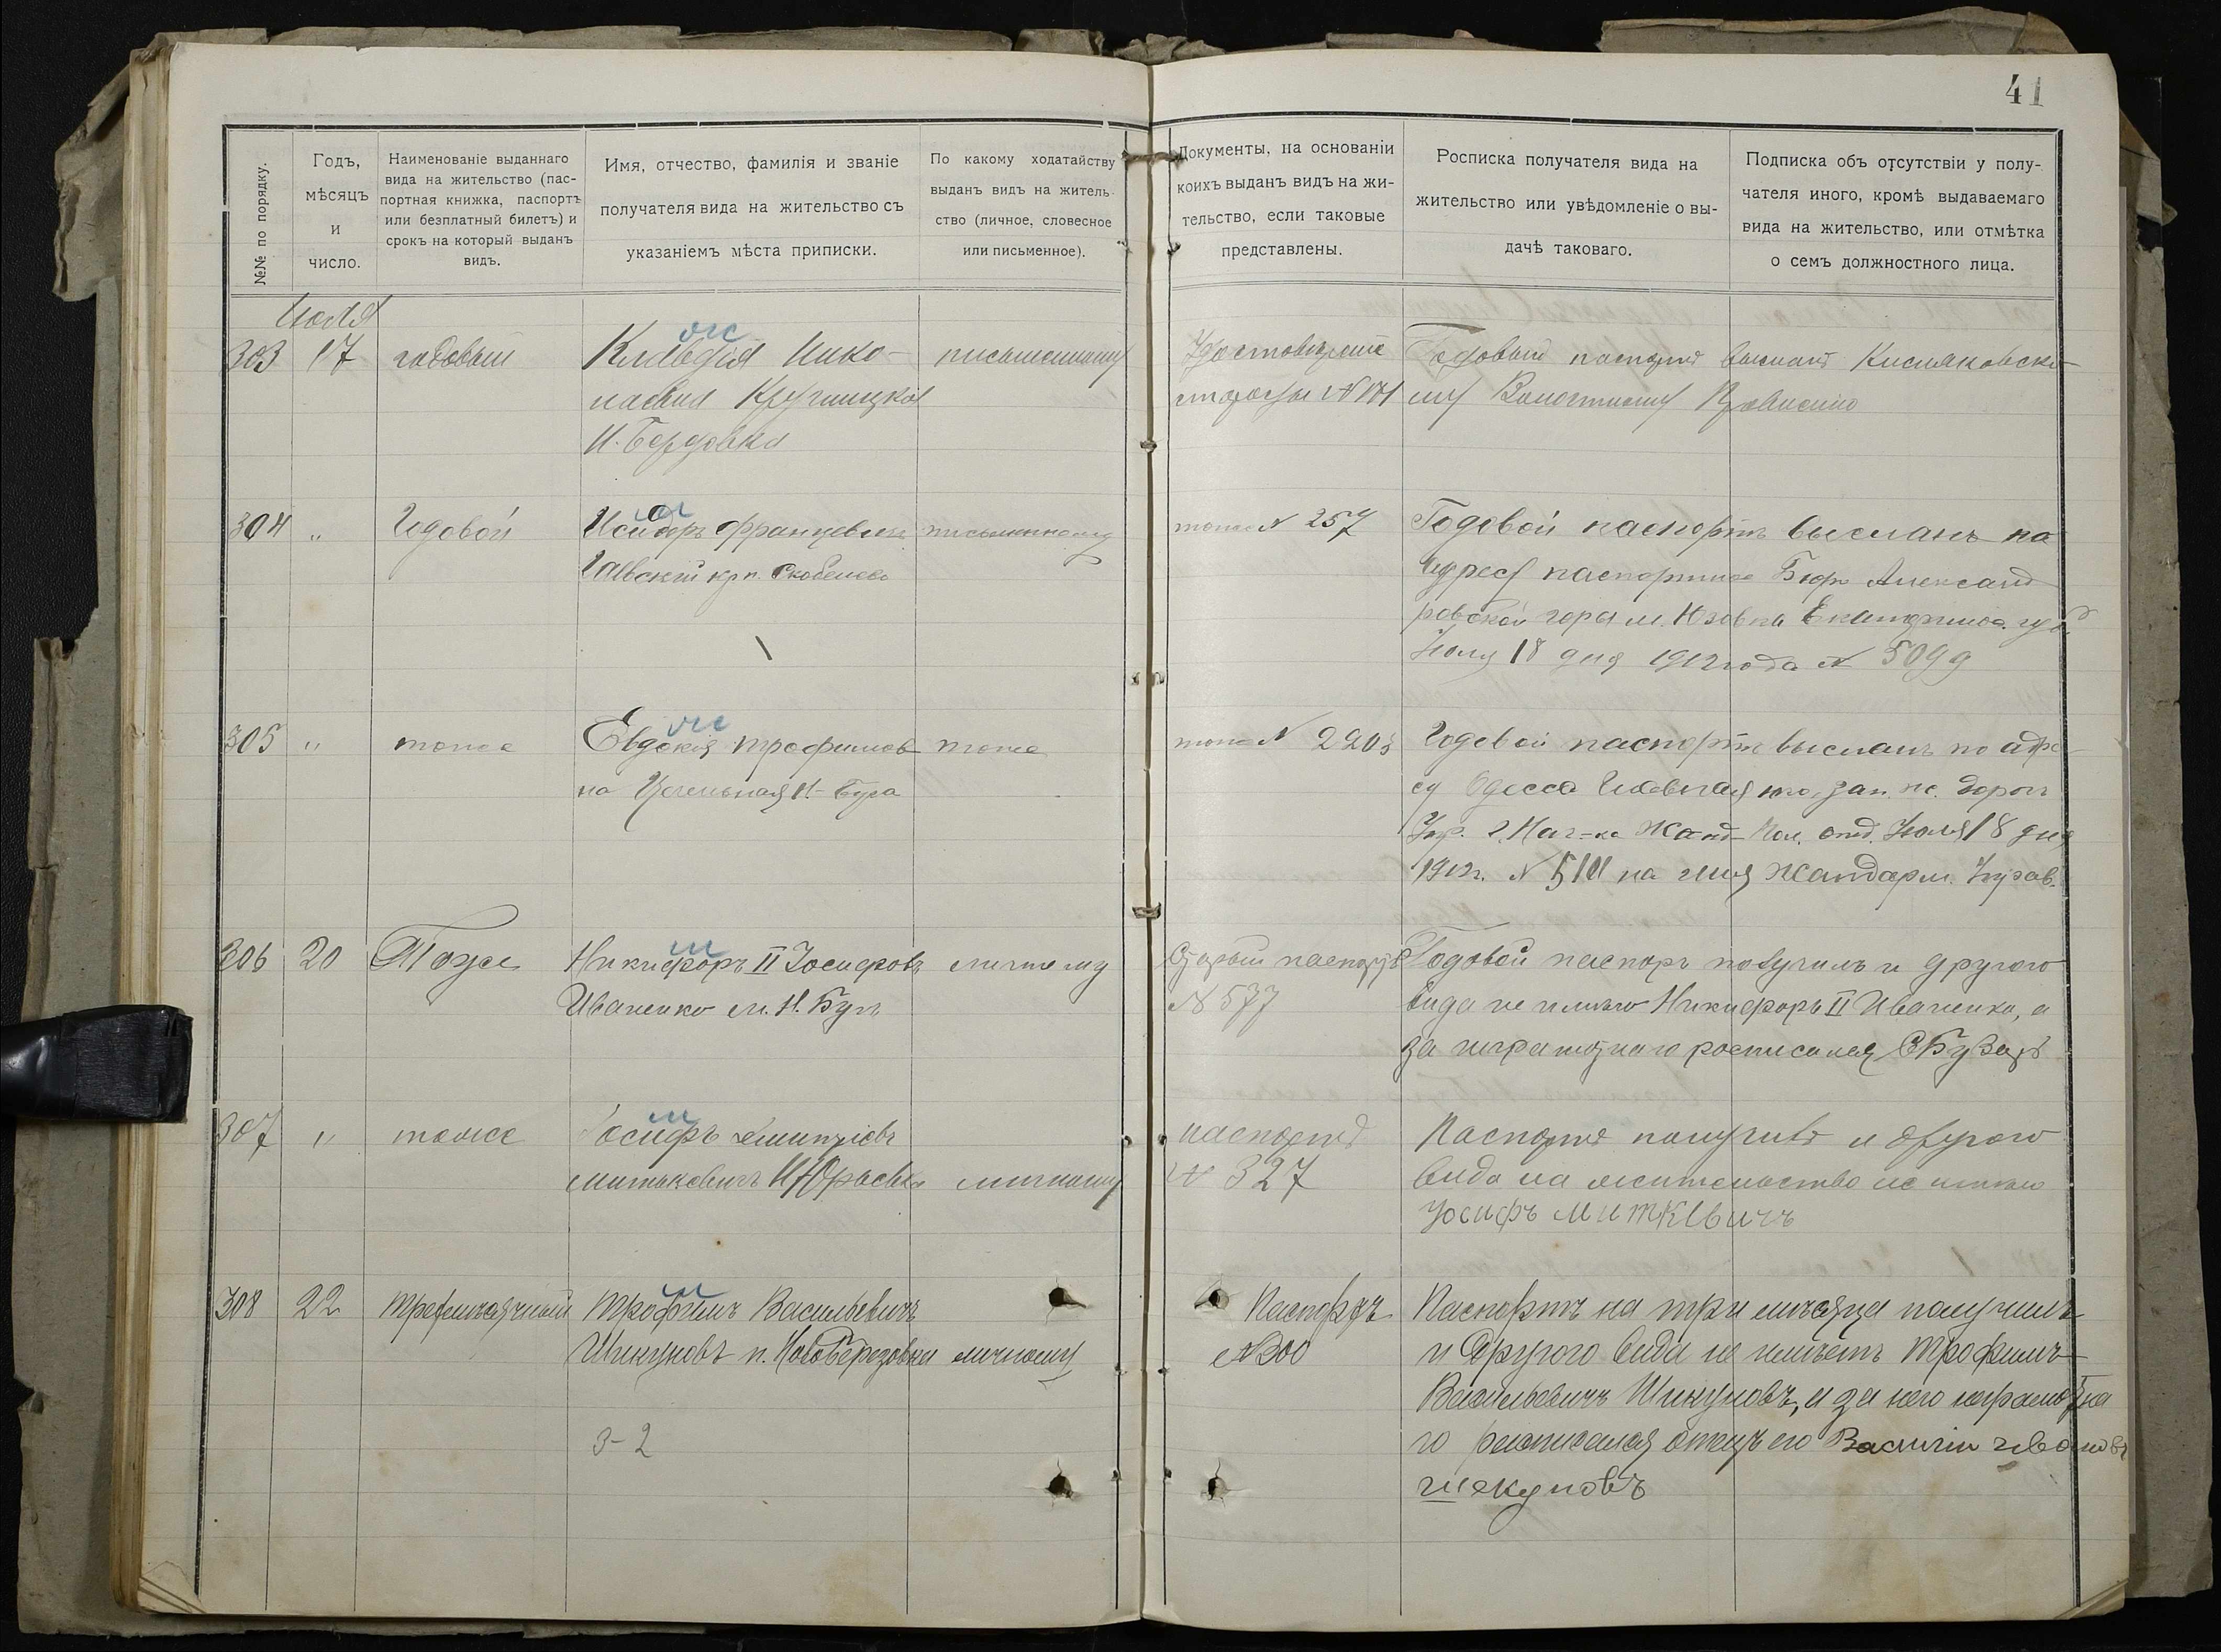 41
№№ по порядку.
Годъ,
мѣсяцъ
и
число.
Наименованіе выданнаго
вида на жительство (пас-
портная книжка, паспортъ
или безплатный билетъ) и
срокъ на который выданъ
видъ.
Имя, отчество, фамилія и званіе
получателя вида на жительство съ
указаніемъ мѣста приписки.
По какому ходатайству
выданъ видъ на житель-
ство (личное, словесное
или письменное).
Документы, на основаніи
коихъ выданъ видъ на жи-
тельство, если таковые
представлены.
Росписка получателя вида на
жительство или увѣдомленіе о вы-
дачѣ таковаго.
Подписка объ отсутствіи у полу-
чателя иного, кромѣ выдаваемаго
вида на жительство, или отмѣтка
о семъ должностного лица.
Іюля
303 17 годовый
Клавдія Нико-
лаевна
письменному
Удостовѣреніе
старосты №
Годовый паспортъ высланъ Кисляковско-
му Волостному Правленію
304 " Годовой
Исидоръ Францевичъ
кр п. Скобелево
письменному
тоже № 257
Годовой паспортъ высланъ на
адресъ Бюро Александ
ровской горы м. Юзовка Екатеринос. губ.
Іюля 18 дня 1912 года № 5099
305 " тоже
Евдокія Трофимов
на Н-Буга
тоже
тоже № 2203
Годовой паспортъ высланъ по адре-
су Одесса юго. зап. ж. дорог
Упр. Нач-ка Жанд Пол. отд. Іюля 18 дня
1912 г. № на имя Жандарм. Управ.
306 20 Тоже
Никифоръ II Іосифовъ
Иваненко м. Н. Бугъ
личному
Старый паспортъ
№ 577
Годовой паспоръ получилъ и другого
вида не имѣю Никифоръ II Иваненко, а
за неграмотнаго росписался
307 " тоже
Іосифъ
личному
паспортъ
№ 327
Паспортъ получилъ и другого
вида на жительство не имѣю
Іосифъ Миткевичъ
308 22 Трехмѣсячный
Трофимъ Васильевичъ
Шикуновъ п. НовоБерезовки
личному
3-2
Паспортъ
№ 300
Паспортъ на три мѣсяца получилъ
и другого вида не имѣетъ Трофимъ
Васильевичъ Шикуновъ, а за него неграмотна
го росписался отецъ его Василии ивановъ
шекуновъ